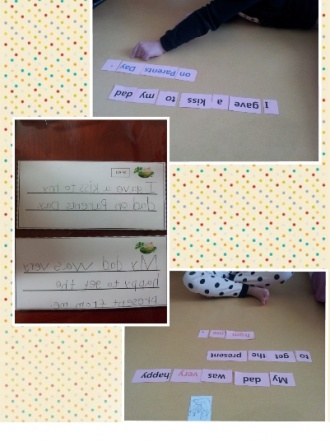 I gave a kiss to my dad
on Parents Day .
I gave a kiss to my
dad on Parents Day
My dad was very
happy to get the
present from me
My dad was very happy
to get the present
from me .